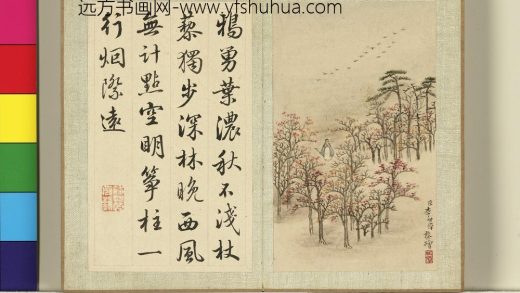 远方书画网-www.yfshuhua.com
鴉舅葉濃秋不淺杖
藜獨步深林晚西風
無計點空明箏柱一
行烟際遠
臣李世倬恭繪